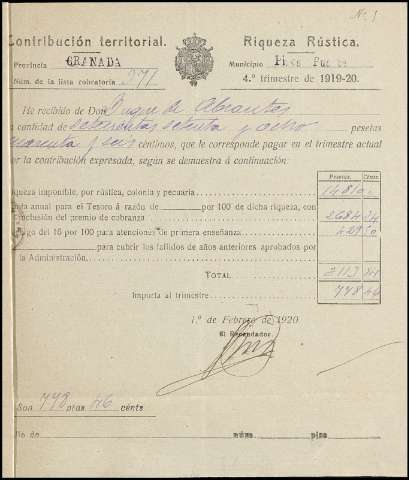 N. 1
Contribución territorial.
Riqueza Rústica.
Provincia GRANADA
Municipio
Núm. de la lista cobratoria 271
4.º trimestre de 1919-20.
He recibido de Don Duque de Abrantes
cantidad de setecientas setenta y ocho pesetas
cuarenta y seis céntimos, que le corresponde pagar en el trimestre actual
or la contribución expresada, según se demuestra á continuación:
Pesetas. Cénts.
iqueza imponible, por rústica, colonia y pecuaria
uota anual para el Tesoro á razón de por 100 de dicha riqueza, con
nclusión del premio de cobranza 2684 34
go del 16 por 100 para atenciones de primera enseñanza 429 50
para cubrir los fallidos de años anteriores aprobados por
la Administración.
TOTAL
Importa al trimestre 778 46
1.º de Febrero de 1920
El Recaudador,
Son 778 ptas 46 cénts
núm. piso